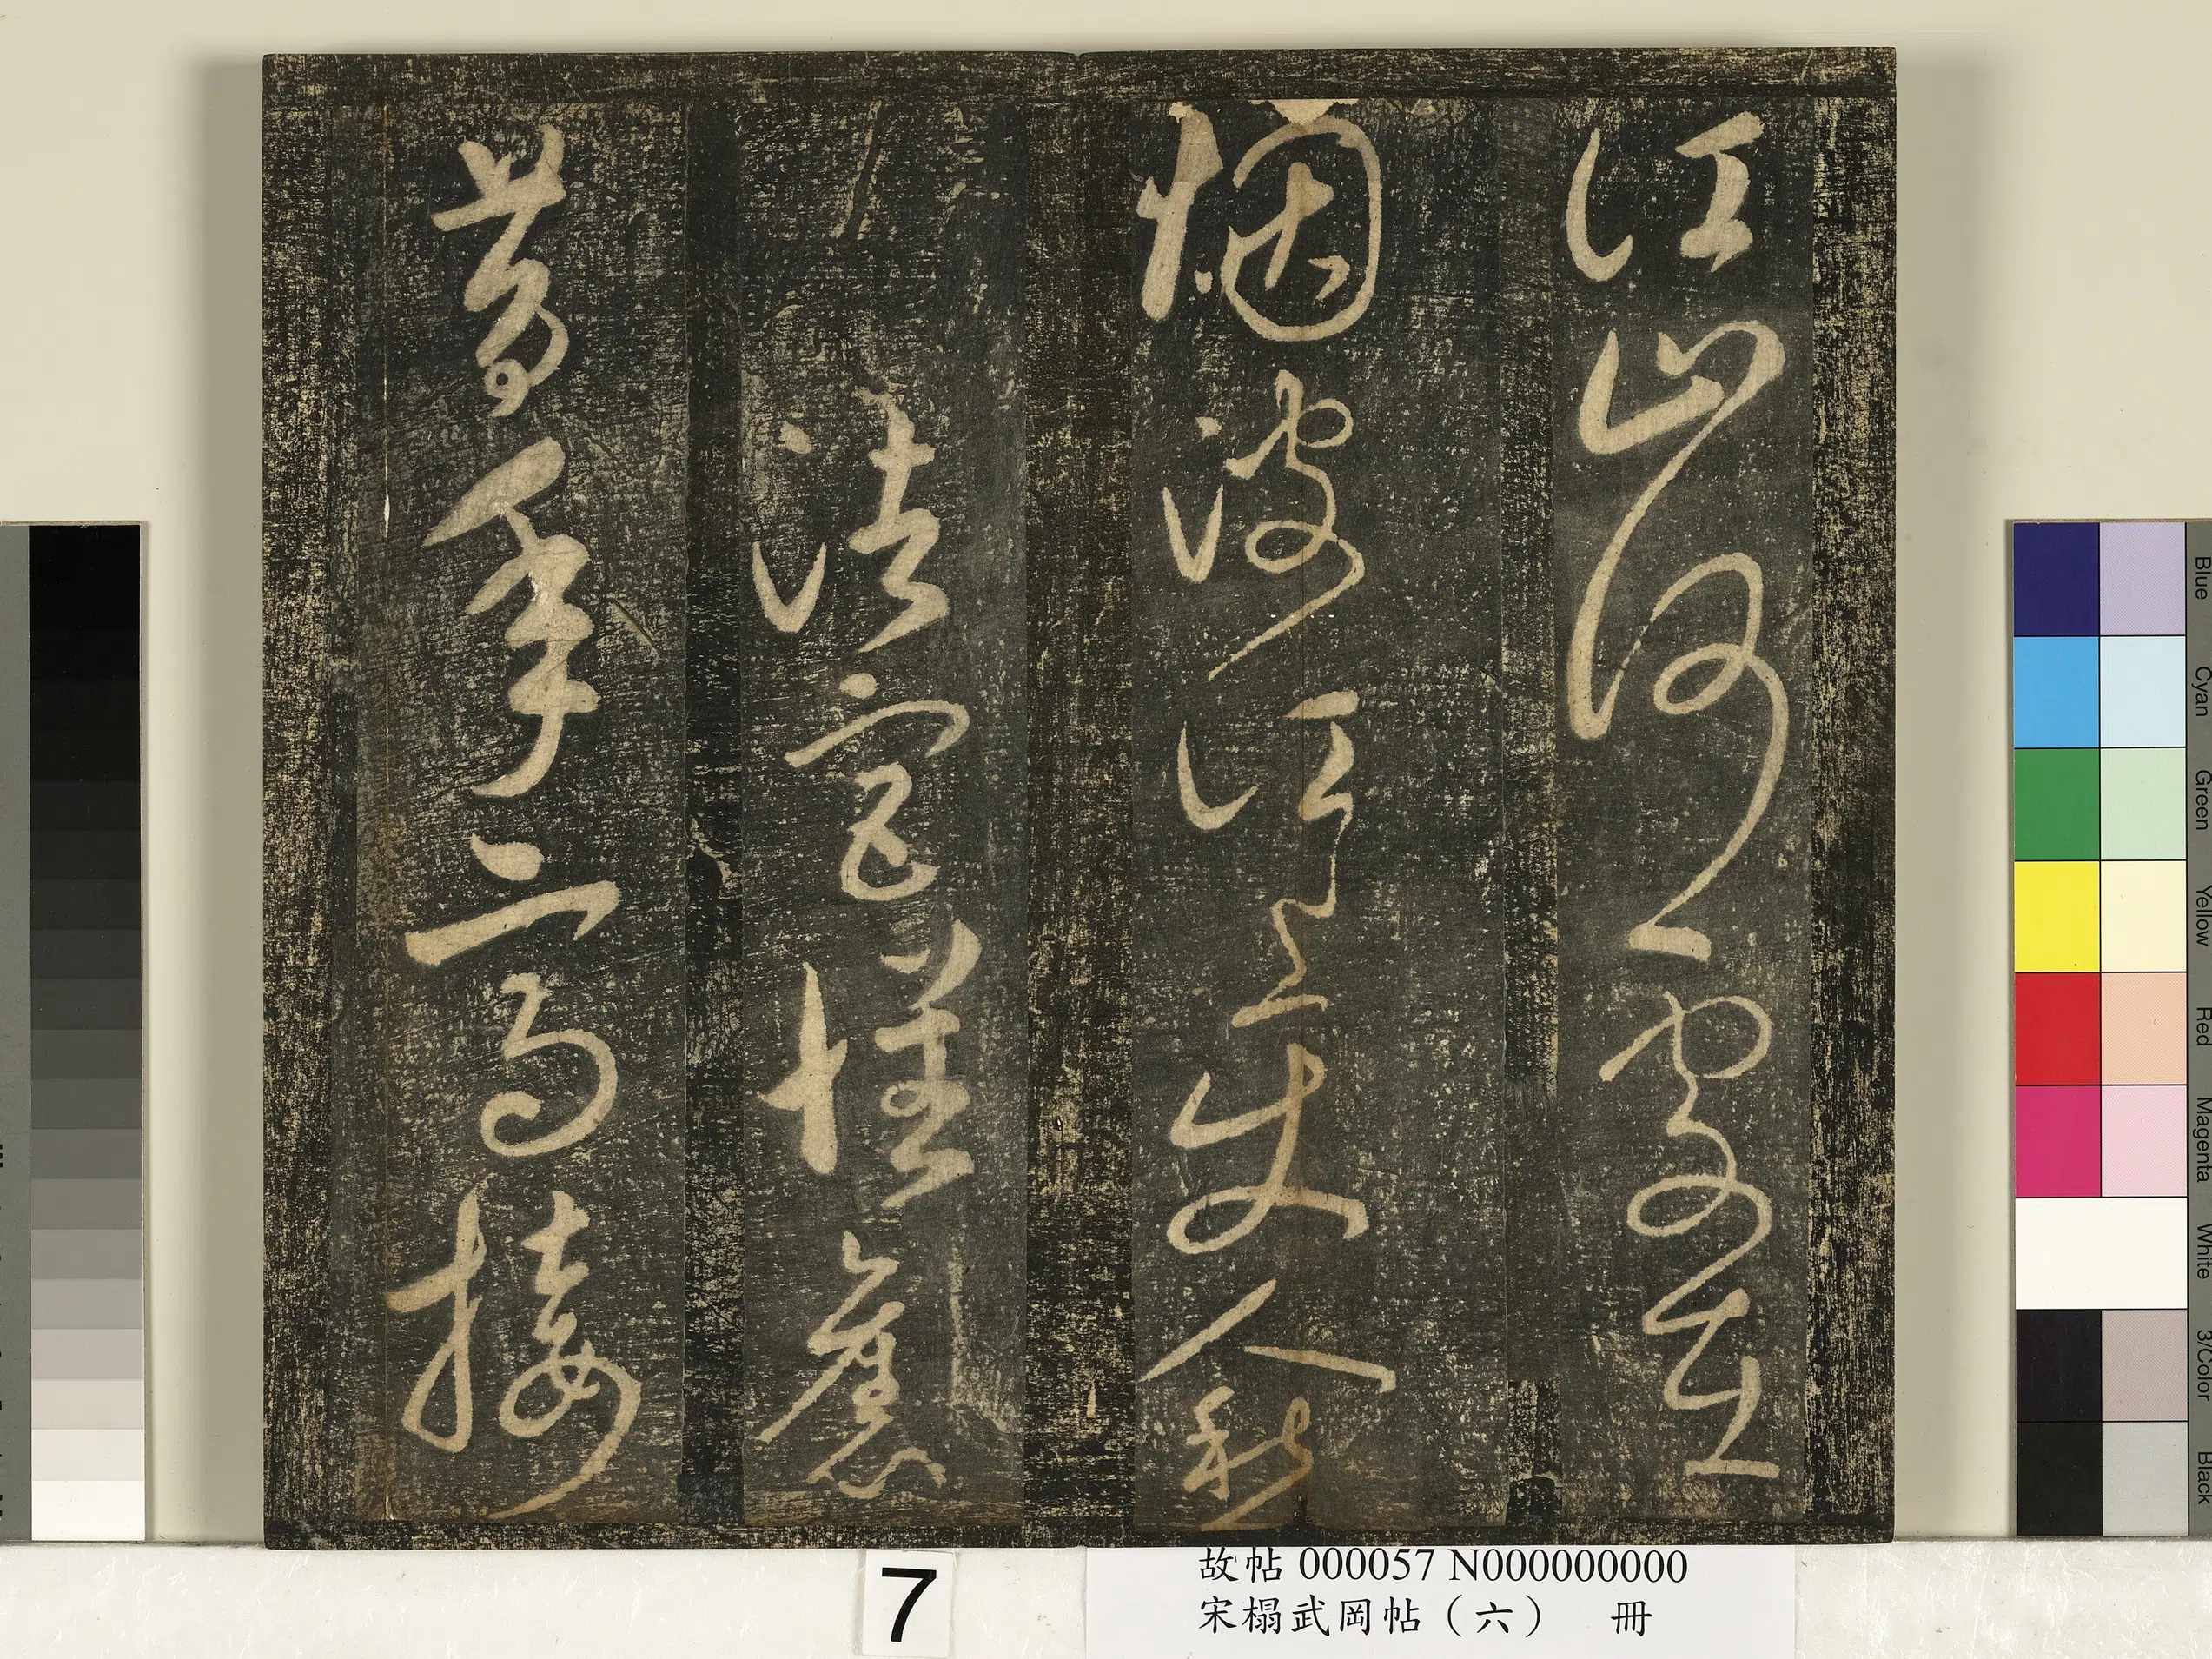 江山何處在
烟波江上使人愁
昔年高接
7
故帖 000057 N000000000
宋榻武岡帖（六） 冊
Blue
Cyan
Green
Yellow
Red
Magenta
White
3/Color
Black